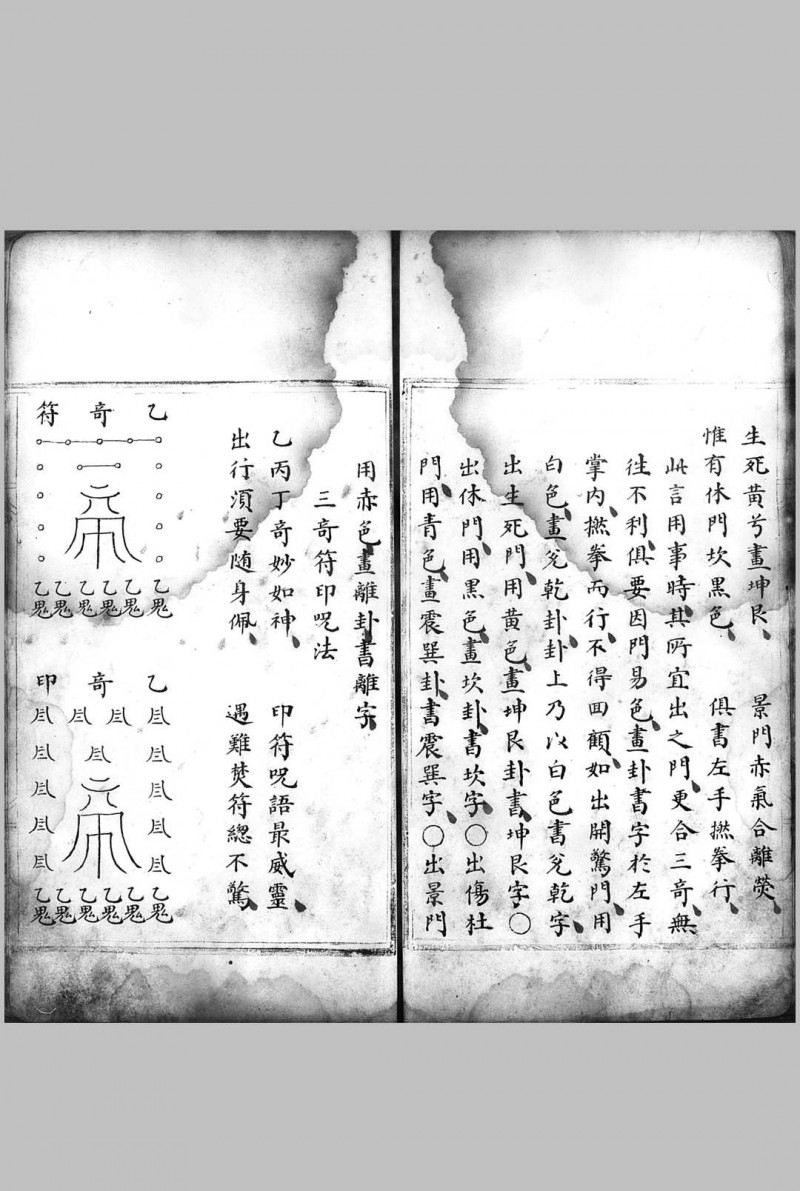 生死黃兮畫坤艮、　景門赤氣合離熒、
惟有休門坎黑色、　俱書左手撚拳行、
此言用事時、其所宜出之門、更合三奇、無
往不利、俱要因門易色、畫卦書字於左手
掌內、撚拳而行、不得回顧、如出開驚門、用
白色、畫兌乾卦、卦上乃以白色書兌乾字、
出生死門、用黃色、畫坤艮卦書、坤艮字、○
出休門、用黑色、畫坎卦、書坎字、○出傷杜
門、用青色、畫震巽卦、書震巽字、○出景門
用赤色畫離卦書離字、
三奇符印呪法
乙丙丁奇妙如神、　印符呪語最威靈、
出行須要隨身佩、　遇難焚符總不驚、
乙奇符
乙鬼 乙鬼 乙鬼 乙鬼 乙鬼 乙鬼
乙奇印
乙鬼 乙鬼 乙鬼 乙鬼 乙鬼 乙鬼